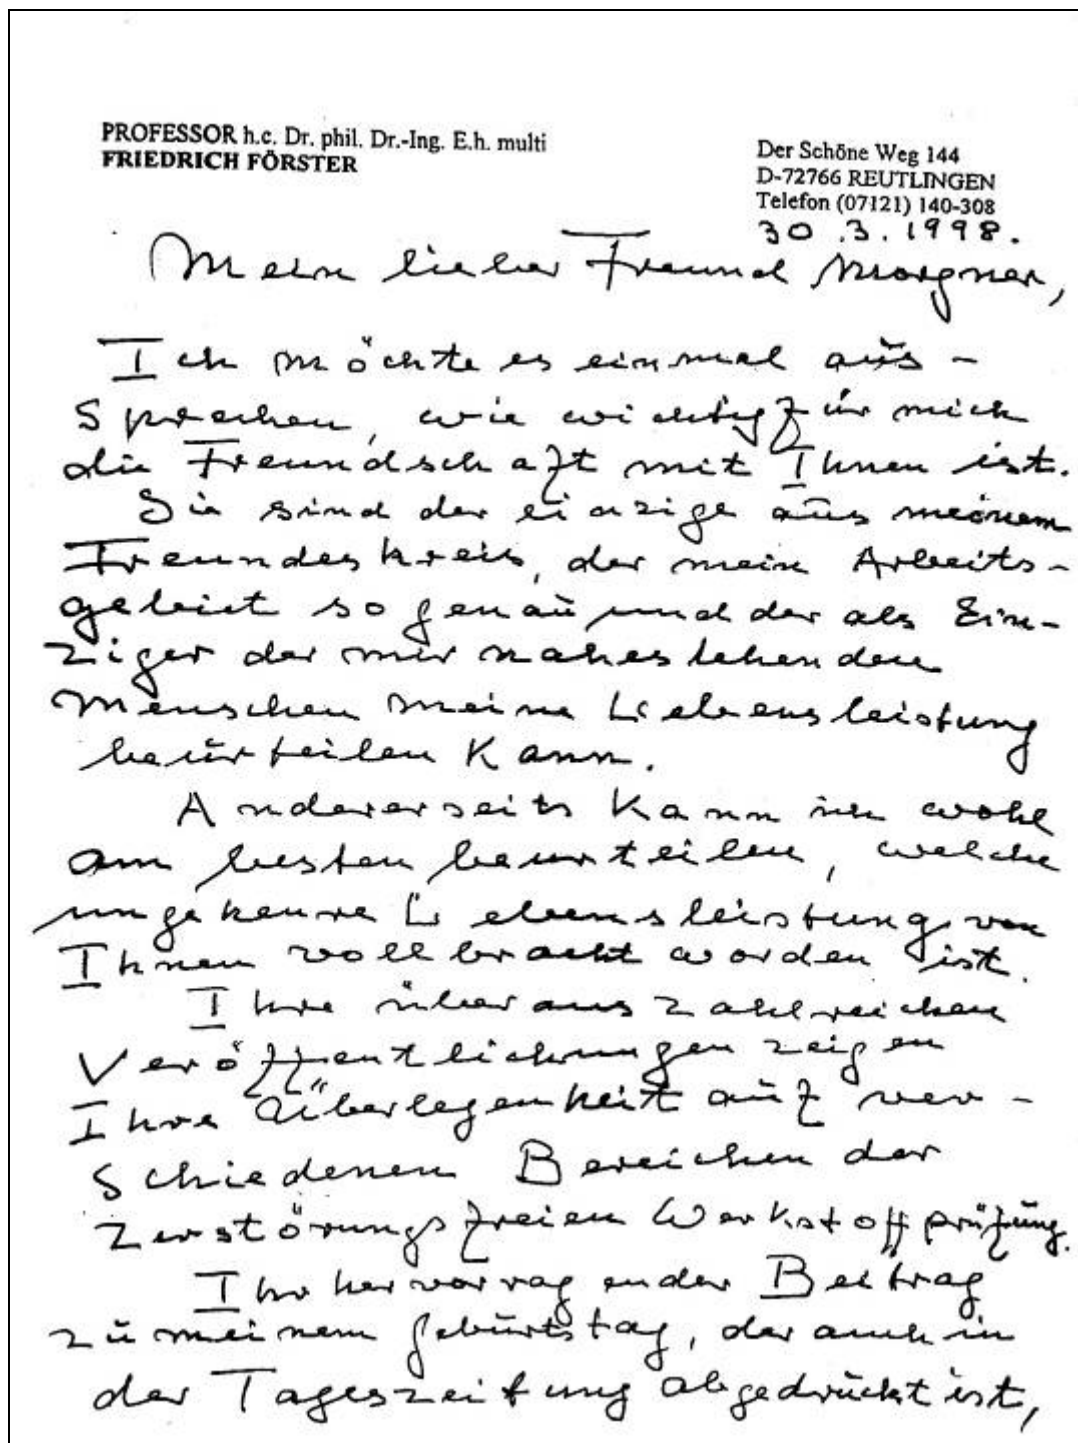 PROFESSOR h.c. Dr. phil. Dr.-Ing. E.h. multi
FRIEDRICH FÖRSTER
Der Schöne Weg 144
D-72766 REUTLINGEN
Telefon (07121) 140-308
30.3.1998.
Mein lieber Freund Morgner,
Ich möchte es einmal aus-
sprechen, wie wichtig für mich
die Freundschaft mit Ihnen ist.
Sie sind der einzige aus meinem
Freundeskreis, der mein Arbeits-
gebiet so genau und der als Ein-
ziger der mir nahestehenden
Menschen meine Lebensleistung
beurteilen kann.
Andererseits kann ich wohl
am besten beurteilen, welche
ungeheure Lebensleistung von
Ihnen vollbracht worden ist.
Ihre überaus zahlreichen
Veröffentlichungen zeigen
Ihre Überlegenheit auf ver-
schiedenen Bereichen der
zerstörungsfreien Werkstoffprüfung.
Ihr hervorragender Beitrag
zu meinem Geburtstag, der auch in
der Tageszeitung abgedruckt ist,